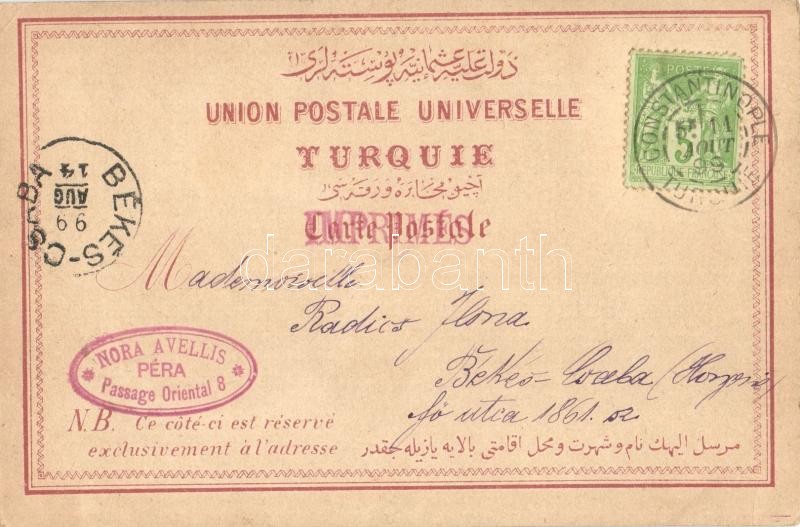 دولت عليه عثمانيه پوسته لرى
UNION POSTALE UNIVERSELLE
TURQUIE
آچيق مخابره ورقه سى
Carte Postale
IMPRIMÉS
POSTE
5
CONSTANTINOPLE
11
AOUT
99
BÉKÉS-CSABA
99
AUG
14
darabanth
Mademoiselle
Radics Ilona
Békés-Csaba
fő utca 1861. sz
NORA AVELLIS
PÉRA
Passage Oriental 8
N.B. Ce côté-ci est réservé
exclusivement à l'adresse
مرسل اليهك نام و شهرت و محل اقامتى بالايه يازيله جقدر